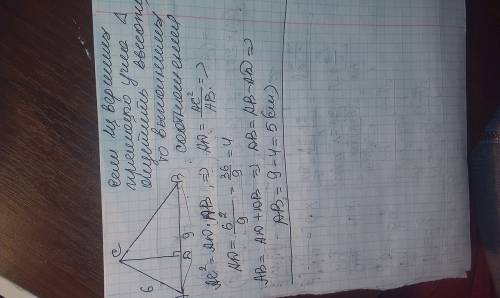 если из вершины
прямого угла Δ
опустить высоту,
то выполнимы
соотношения
C
6
A
D
9
B
AC² = AD · AB, ⇒ AD = AC²/AB ⇒
AD = 6²/9 = 36/9 = 4
AB = AD + DB ⇒ DB = AB - AD ⇒
DB = 9 - 4 = 5 (см)